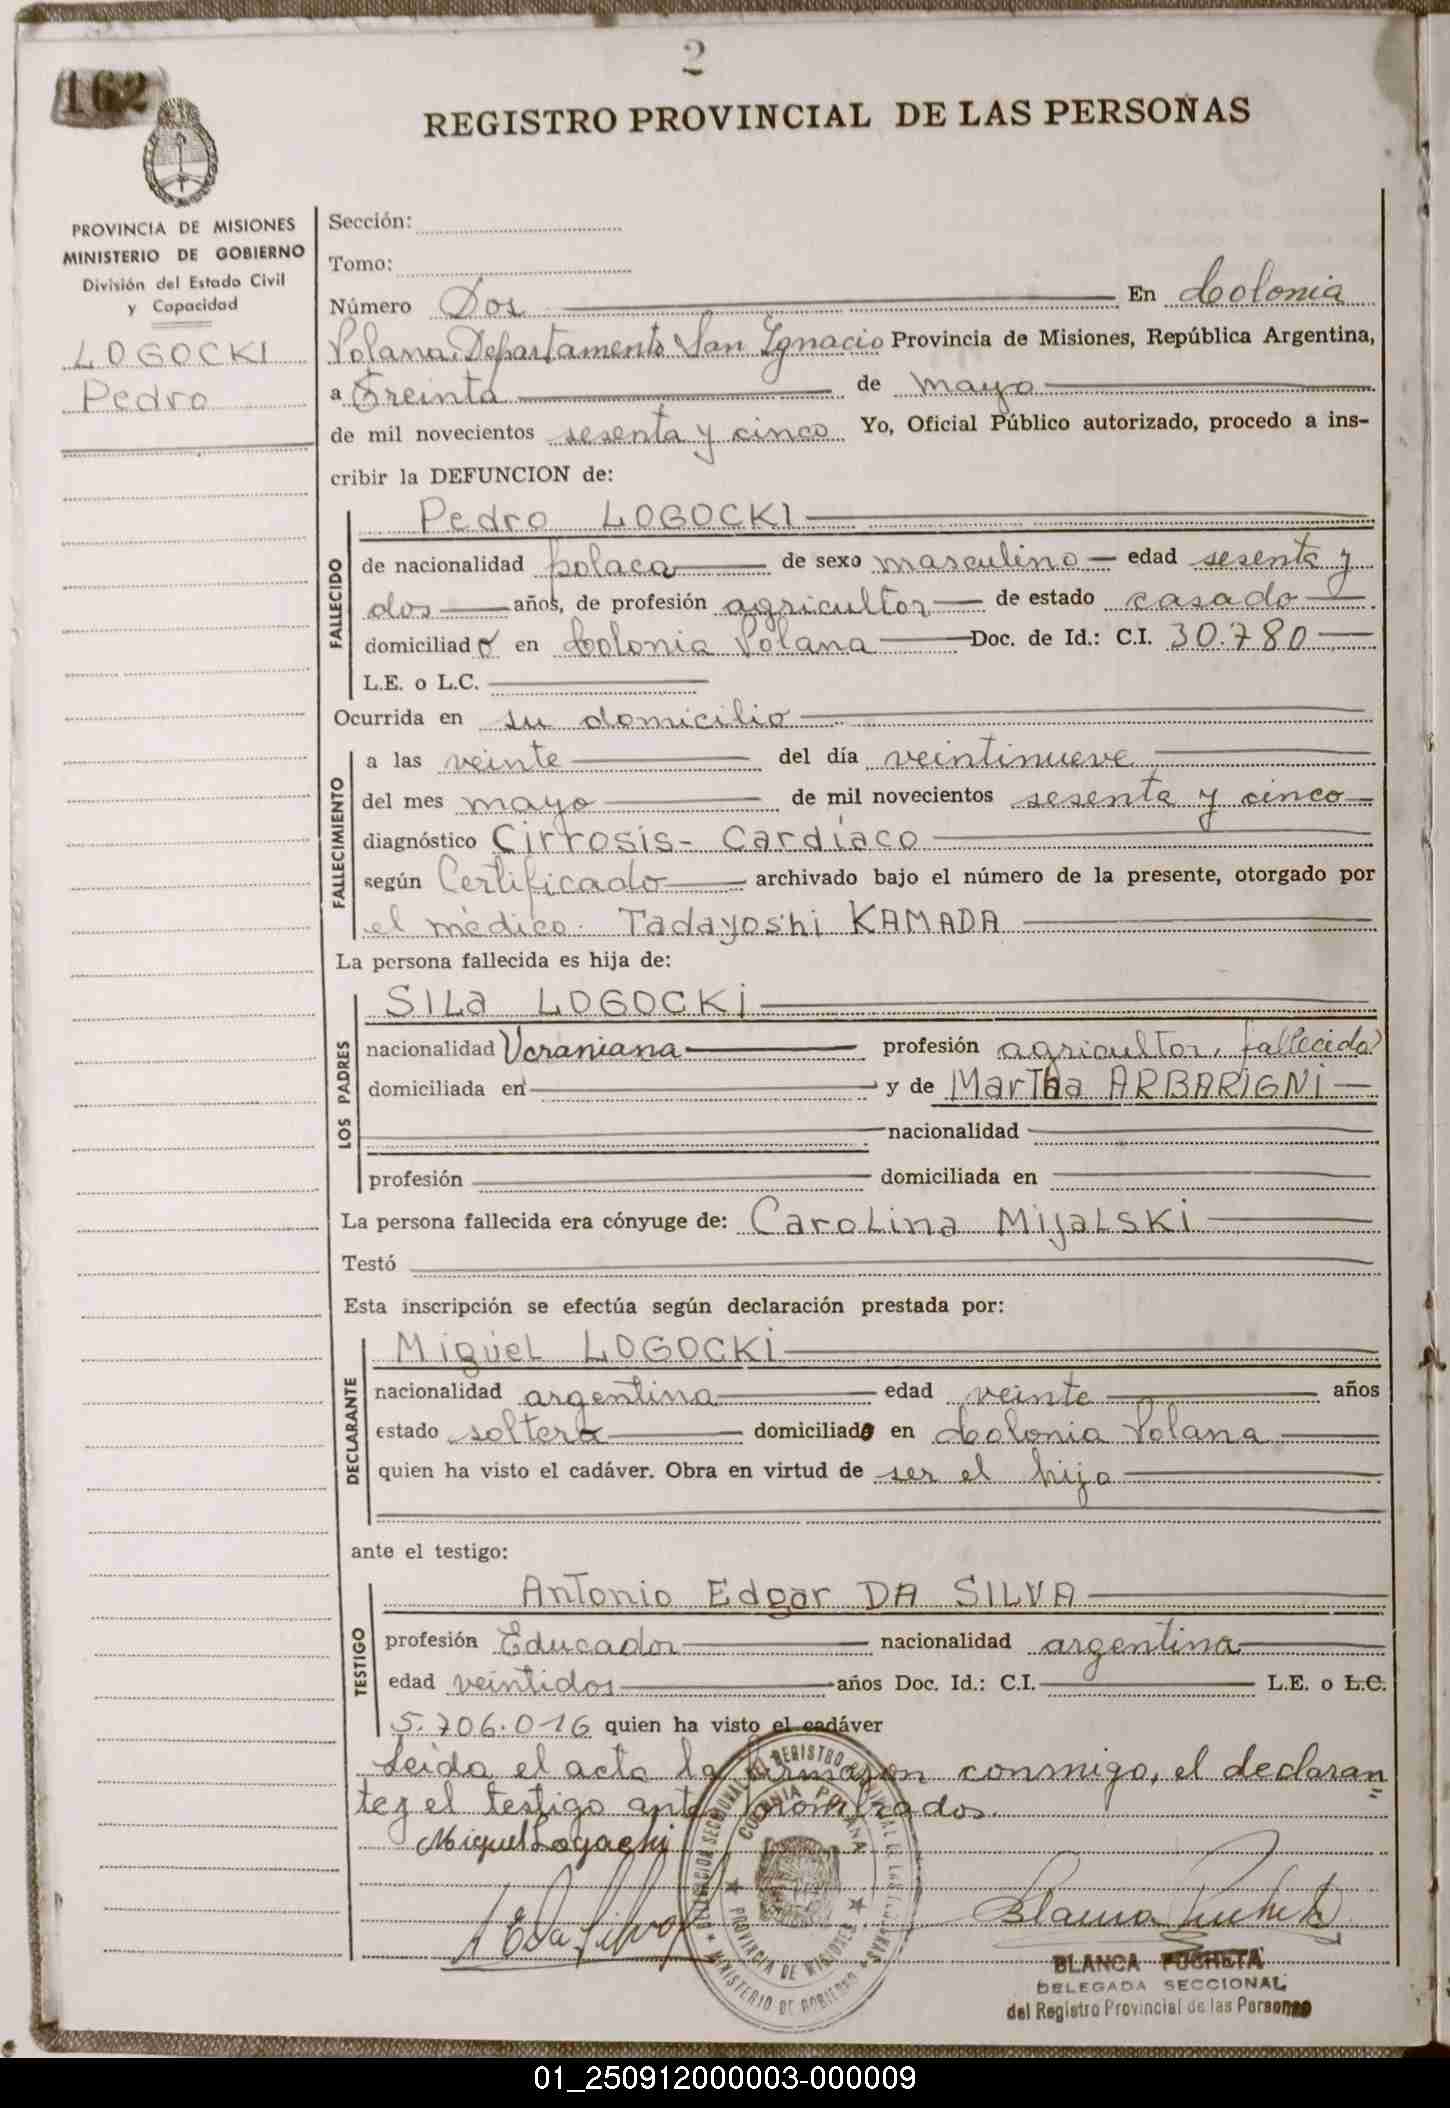 2
162
REGISTRO PROVINCIAL DE LAS PERSONAS
PROVINCIA DE MISIONES
MINISTERIO DE GOBIERNO
División del Estado Civil
y Capacidad
LOGOCKI
Pedro
Sección:
Tomo:
Número Dos En Colonia
Polana, Departamento San Ignacio Provincia de Misiones, República Argentina,
a treinta de mayo
de mil novecientos sesenta y cinco Yo, Oficial Público autorizado, procedo a ins-
cribir la DEFUNCION de:
Pedro LOGOCKI
FALLECIDO
de nacionalidad polaca de sexo masculino edad sesenta y
dos años, de profesión agricultor de estado casado
domiciliado en Colonia Polana Doc. de Id.: C.I. 30.780
L.E. o L.C.
Ocurrida en su domicilio
FALLECIMIENTO
a las veinte del día veintinueve
del mes mayo de mil novecientos sesenta y cinco
diagnóstico Cirrosis- Cardíaco
según Certificado archivado bajo el número de la presente, otorgado por
el médico. Tadayoshi KAMADA
La persona fallecida es hija de:
LOS PADRES
SILa LOGOCKi
nacionalidad Ucraniana profesión agricultor, fallecido
domiciliada en y de Martha ARBARIGNi
nacionalidad
profesión domiciliada en
La persona fallecida era cónyuge de: Carolina Mijalski
Testó
Esta inscripción se efectúa según declaración prestada por:
DECLARANTE
Miguel LOGOCKi
nacionalidad argentina edad veinte años
estado soltero domiciliado en Colonia Polana
quien ha visto el cadáver. Obra en virtud de ser el hijo
ante el testigo:
TESTIGO
Antonio Edgar DA SILVA
profesión Educador nacionalidad argentina
edad veintidos años Doc. Id.: C.I. L.E. o L.C.
5.706.016 quien ha visto el cadáver
Leida el acta la firmaron conmigo, el declaran
te y el testigo antes nombrados.
Miguel Logocki
DELEGACION SECCIONAL DEL REGISTRO PROVINCIAL DE LAS PERSONAS
COLONIA POLANA
PROVINCIA DE MISIONES
MINISTERIO DE GOBIERNO
Blanca Pucheta
BLANCA PUCHETA
DELEGADA SECCIONAL
del Registro Provincial de las Personas
01_250912000003-000009